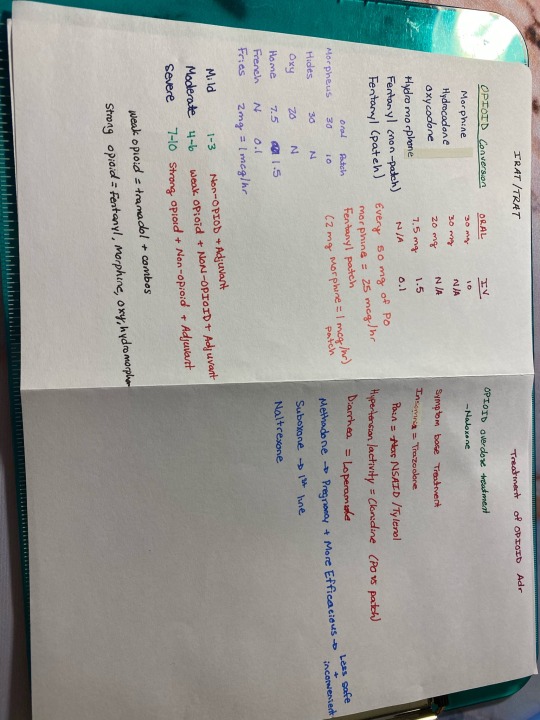 IRAT/TRAT
OPIOID Conversion ORAL IV
Morphine 30 mg 10
Hydrocodone 30 mg N/A
oxycodone 20 mg N/A
Hydromorphone 7.5 mg 1.5
Fentanyl (non-patch) N/A 0.1
Fentanyl (patch) Every 50 mg of PO
morphine = 25 mcg/hr
Fentanyl patch
(2 mg morphine = 1 mcg/hr)
patch
oral Patch
Morpheus 30 10
Hides 30 N
Oxy 20 N
Home 7.5 1.5
French N 0.1
Fries 2mg = 1 mcg/hr
Mild 1-3 Non-OPIOID + Adjuvant
Moderate 4-6 weak opioid + NON-OPIOID + Adjuvant
Severe 7-10 Strong opioid + Non-opioid + Adjuvant
weak opioid = tramadol + combos
Strong opioid = fentanyl, Morphine, oxy, hydromorphone
Treatment of OPIOID Adr
OPIOID overdose treatment
- Naloxone
Symptom base Treatment
Insomnia = Trazodone
Pain = NSAID/Tylenol
Hypertension/activity = Clonidine (PO vs patch)
Diarrhea = Loperamide
Methadone → Pregnancy + More Efficacious → Less safe
+
inconvenient
Suboxone → 1st line
Naltrexone